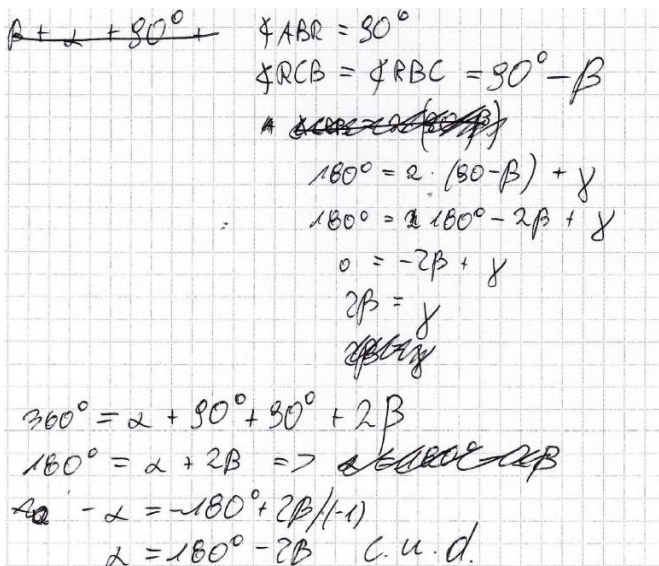 β + α + 90° +
∢ABR = 90°
∢RCB = ∢RBC = 90° - β
180° = 2 · (90-β) + γ
180° = 180° - 2β + γ
0 = -2β + γ
2β = γ
360° = α + 90° + 90° + 2β
180° = α + 2β =>
-α = -180° + 2β /(-1)
α = 180° - 2β c.u.d.